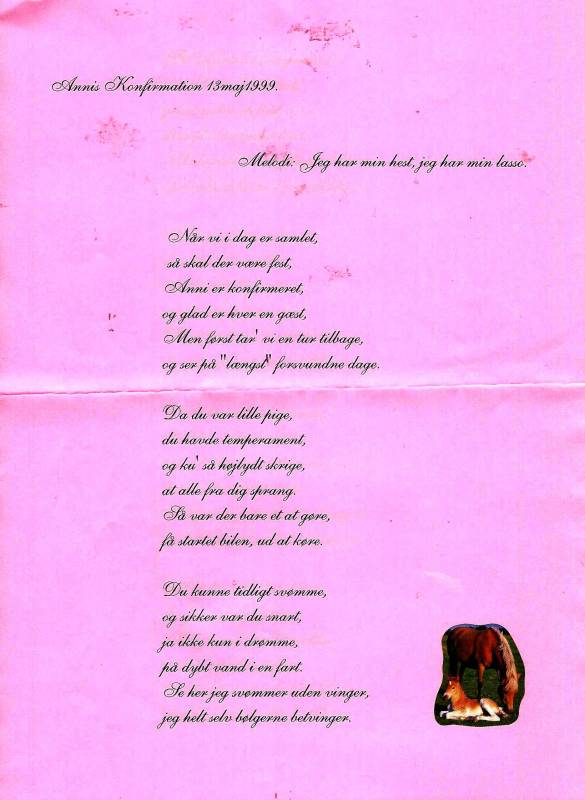 Annis Konfirmation 13maj1999.
Melodi: Jeg har min hest, jeg har min lasso.
Når vi i dag er samlet,
så skal der være fest,
Anni er konfirmeret,
og glad er hver en gæst,
Men først tar' vi en tur tilbage,
og ser på "længst" forsvundne dage.
Da du var lille pige,
du havde temperament,
og ku' så højlydt skrige,
at alle fra dig sprang.
Så var der bare et at gøre,
få startet bilen, ud at køre.
Du kunne tidligt svømme,
og sikker var du snart,
ja ikke kun i drømme,
på dybt vand i en fart.
Se her jeg svømmer uden vinger,
jeg helt selv bølgerne betvinger.